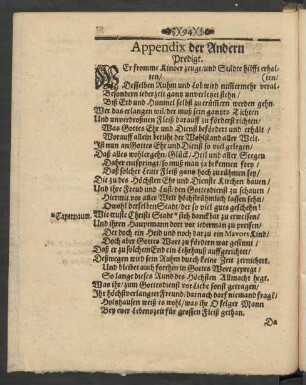 94
Appendix der Andern
Predigt.
Er fromme Kinder zeuge / und Städte hilfft erhal-
ten / (ten /
Desselben Ruhm und Lob wird nimmermehr veral-
Besondern jederzeit gantz unverletzet stehn /
Biß Erd und Himmel selbst zu trümern werden gehn.
Wer das erlangen wil / der muß sein gantzes Tichten
Und unverdroßnen Fleiß darauff zu förderst richten /
Was Gottes Ehr und Dienst befördert und erhält /
Worauff allein beruht der Wohlstand aller Welt.
Ist nun an Gottes Ehr und Dienst so viel gelegen /
Daß alles wohlergehn / Glück / Heil und aller Segen
Daher entspringt / so muß man ja bekennen frey /
Daß solcher Leute Fleiß gantz hoch zu rühmen sey /
Die zu des Höchsten Ehr und Dienste Kirchen bauen /
Und ihre Freud und Lust den Gottesdienst zu schauen /
Hiermit vor aller Welt höchstrühmlich lassen sehn /
O wohl derselben Stadt / der so viel guts geschehn!
Wie muste Christi Stadt* sich danckbar zu erweisen /
*Capernaum.
Und ihren Hauptmann dort vor jederman zu preisen /
Der doch ein Heid und noch darzu ein Mavors Kind /
Doch aber Gottes Wort zu fördern war gesinnt /
Daß er zu solchem End ein Lehrhauß auffgerichtet /
Deßwegen wird sein Ruhm durch keine Zeit zernichtet.
Und bleibet auch forthin in Gottes Wort gepregt /
So lange dieses Rund des Höchsten Allmacht hegt.
Was ihr / zum Gottesdienst vor Liebe sonst getragen /
Ihr höchstverlangter Freund / darnach darf niemand fragē /
Holtzhausen weiß es wohl / was ihr O selger Mann
Bey eurer Lebenszeit für grossen Fleiß gethan.
Da